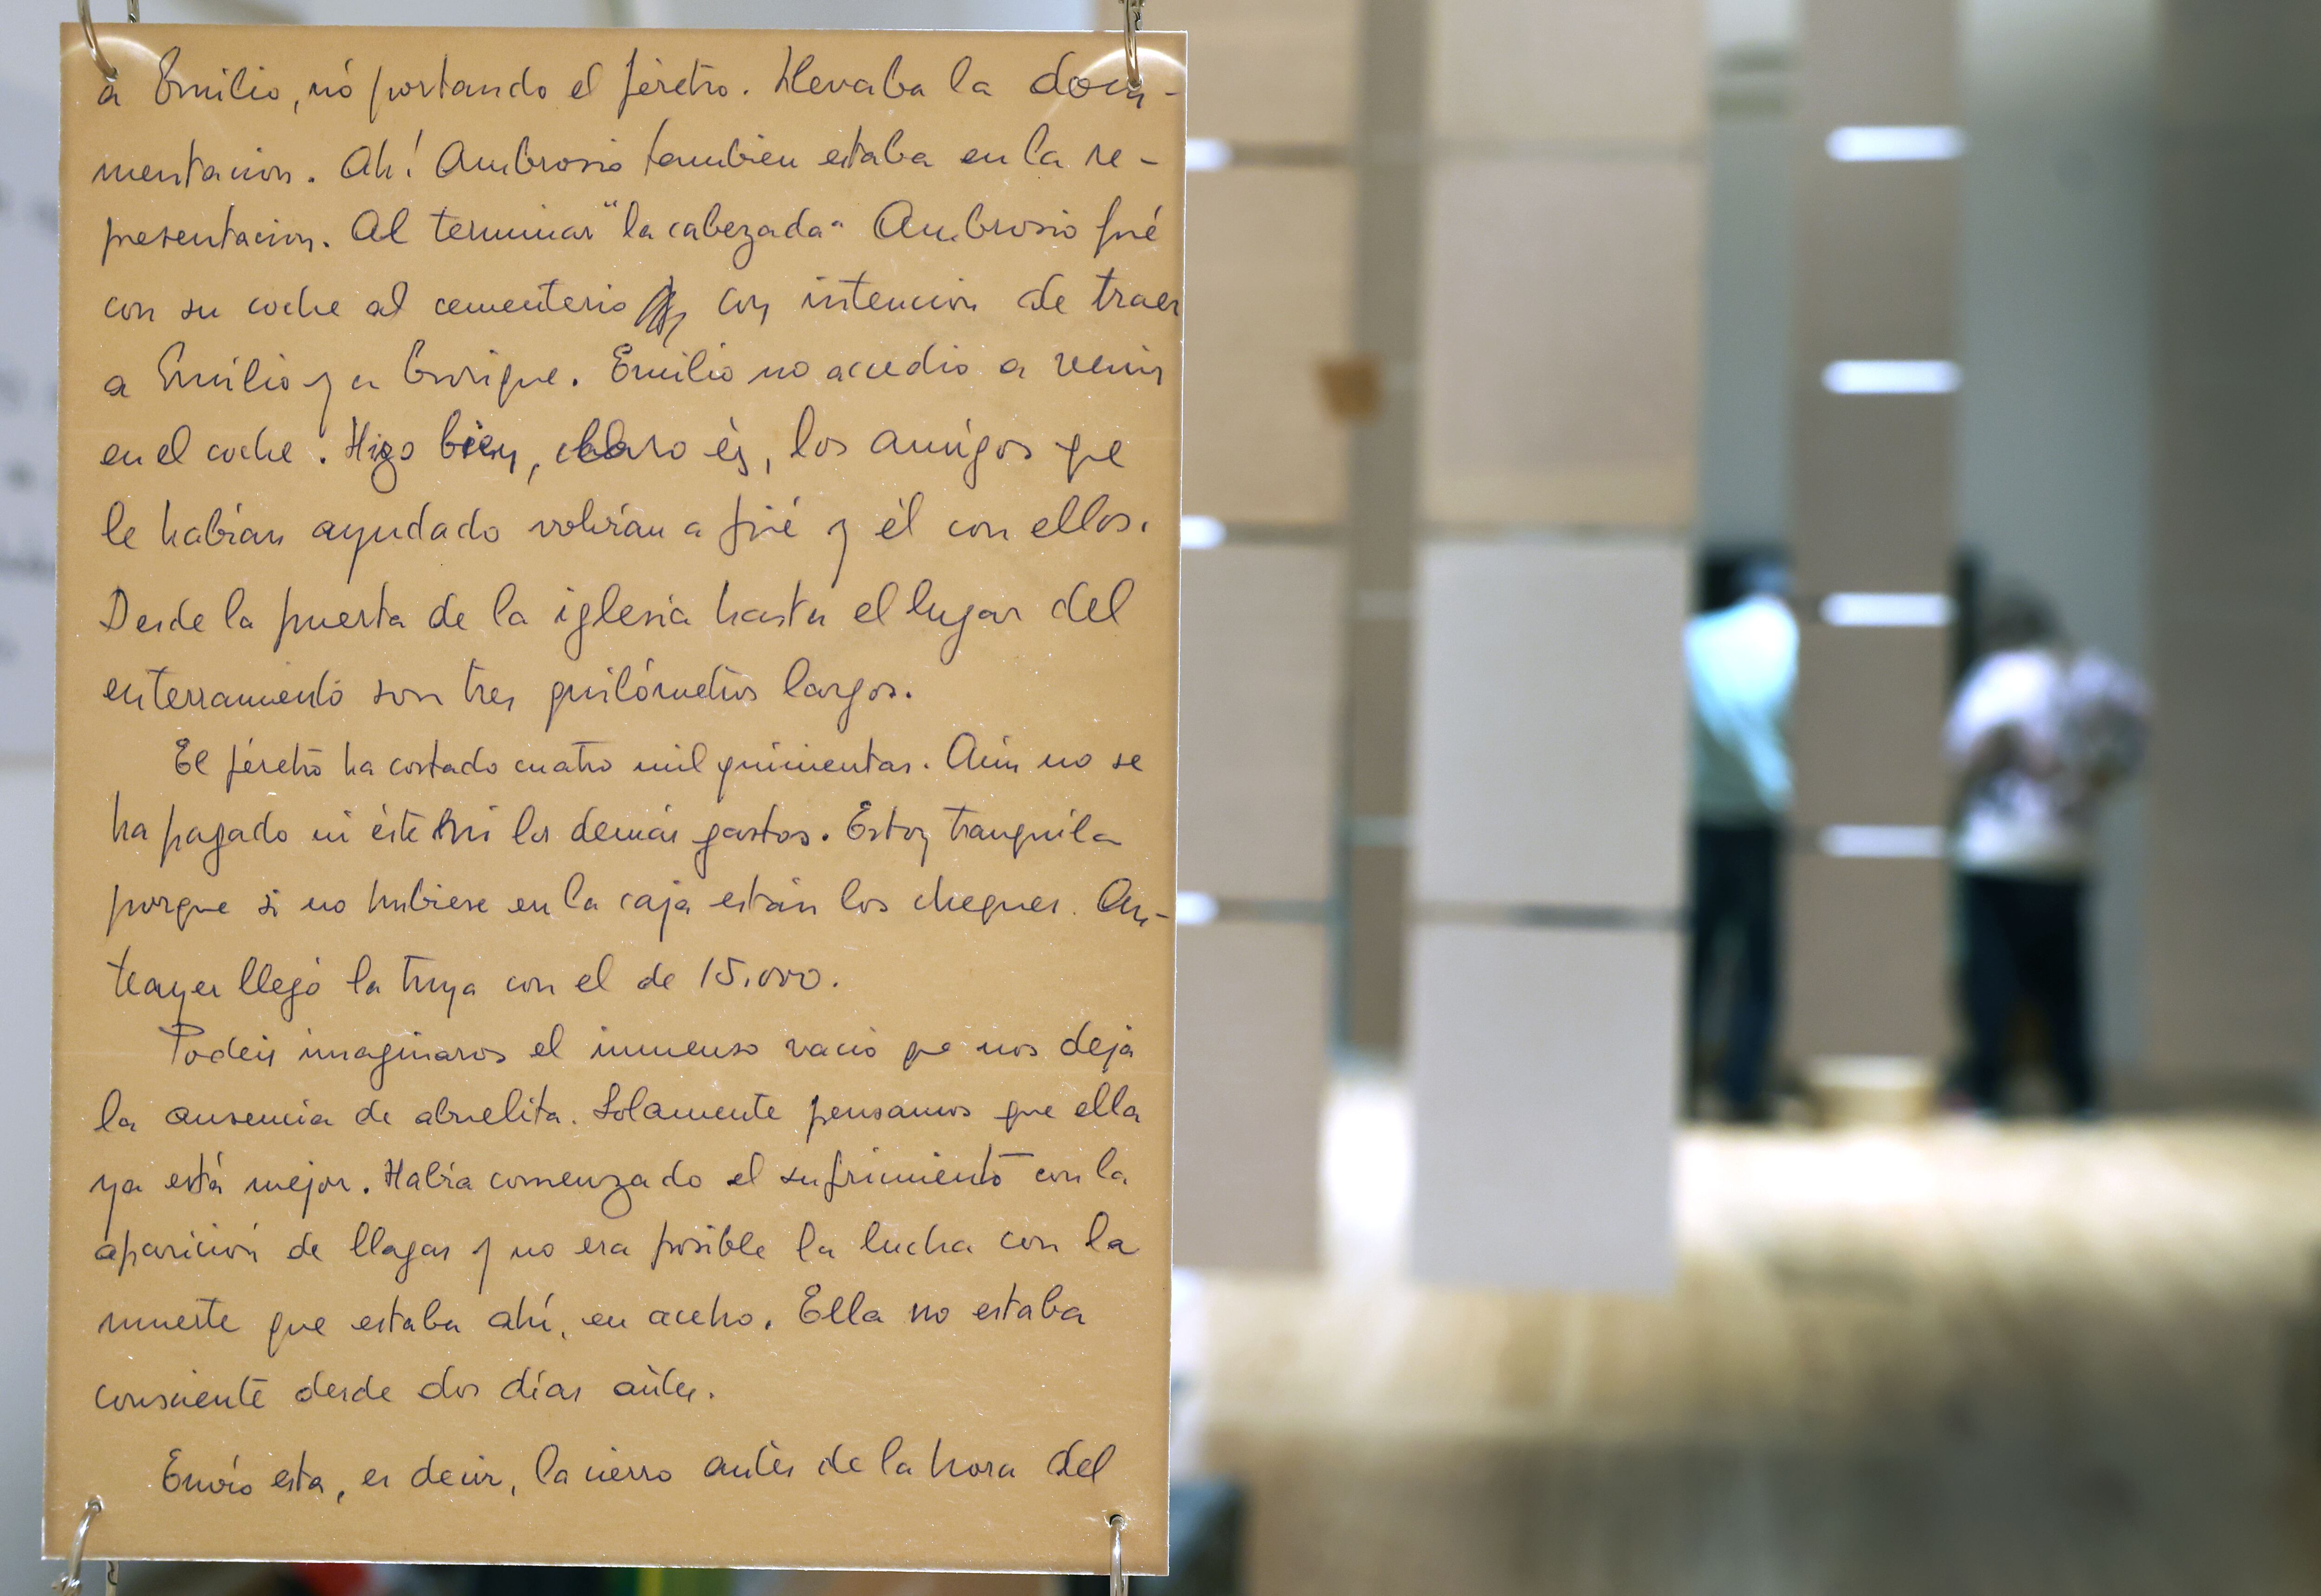 a Emilio, nó portando el féretro. Llevaba la docu-
mentacion. Ah! Ambrosio tambien estaba en la re-
presentacion. Al terminar "la cabezada" Ambrosio fué
con su coche al cementerio con intencion de traer
a Emilio y a Enrique. Emilio no accedio a venir
en el coche. Hizo bien, claro és, los amigos qe
le habían ayudado volvían a pié y él con ellos.
Desde la puerta de la iglesia hasta el lugar del
enterramiento son tres quilómetros largos.
El féretro ha costado cuatro mil quinientas. Aún no se
ha pagado ni éste ni los demás gastos. Estoy tranquila
porque si no hubiese en la caja están los cheques. An-
teayer llegó la tuya con el de 15.000.
Podeis imaginaros el inmenso vacio qe nos deja
la ausencia de abuelita. Solamente pensamos que ella
ya está mejor. Había comenzado el sufrimiento con la
aparición de llagas y no era posible la lucha con la
muerte que estaba ahí, en acecho. Ella no estaba
consciente desde dos días antes.
Envío esta, es decir, la cierro antes de la hora del